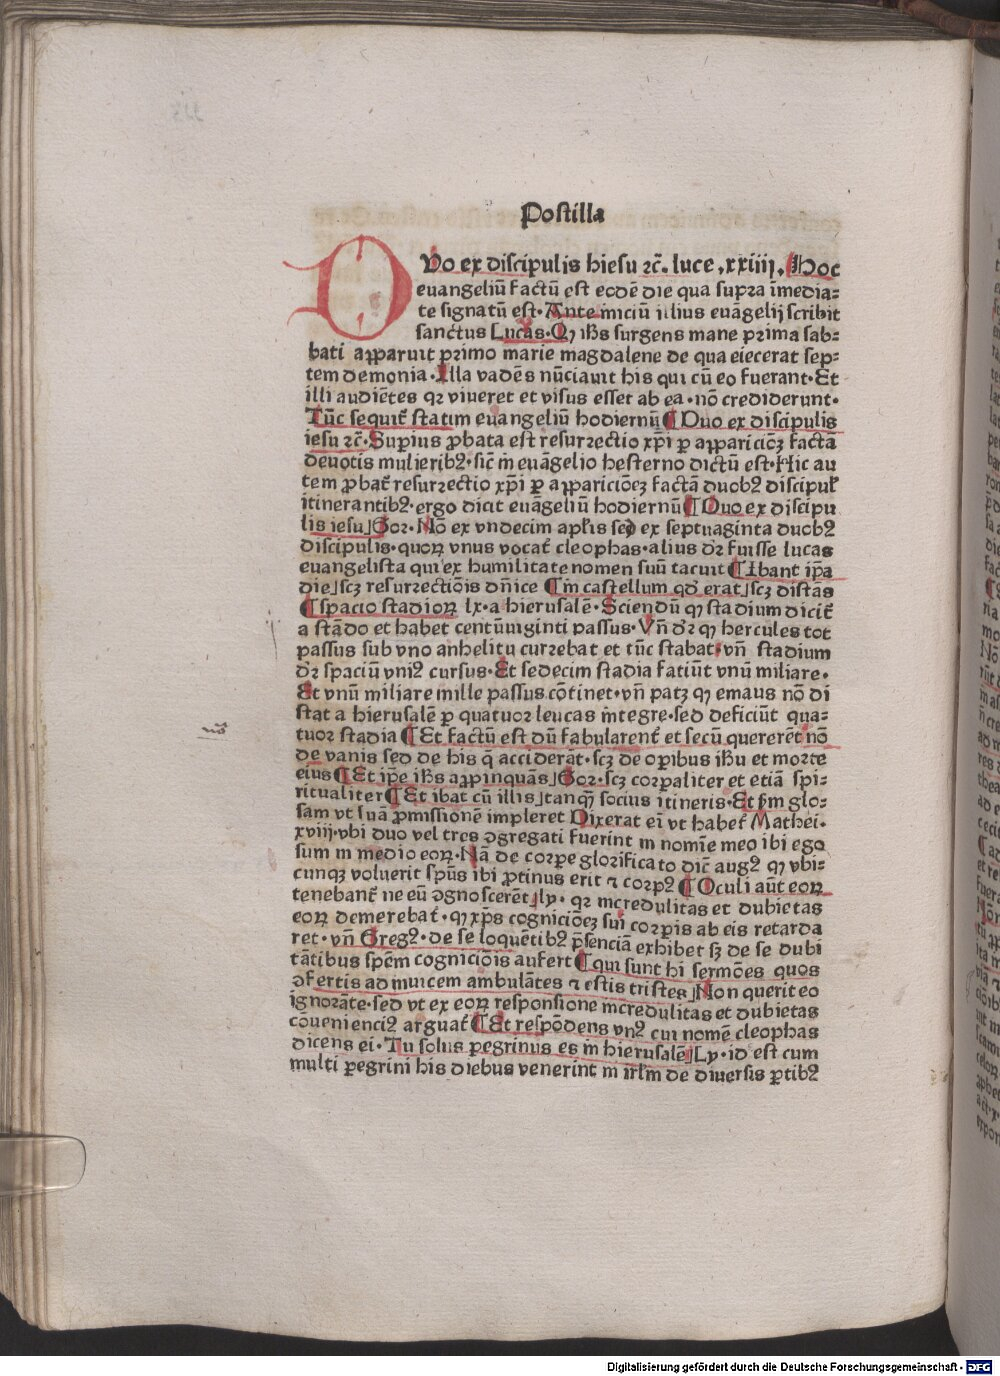 Postilla
DVo ex discipulis hiesu ⁊c̃. luce .xxiiij. Hoc
euangeliũ factũ est eodẽ die qua supra ĩmedia-
te signatũ est. Ante iniciũ illius euãgelij scribit
sanctus Lucas. Qꝫ ihs̃ surgens mane prima sab-
bati apparuit primo marie magdalene de qua eiecerat sep-
tem demonia. Illa vadẽs nũciauit his qui cũ eo fuerant. Et
illi audiẽtes qꝛ viueret et visus esset ab ea. nõ crediderunt.
Tũc sequit̃ statim euangeliũ hodiernũ ¶ Duo ex discipulis
iesu ⁊c̃. Supius ꝓbata est resurrectio xp̃i ꝑ appariciõeꝫ factã
deuotis mulierib9. sic̃ in euãgelio hesterno dictũ est. Hic au
tem ꝓbat̃ resurrectio xp̃i ꝑ appariciõeꝫ factã duob9 discipul̃
itinerantib9. ergo dicit euãgeliũ hodiernũ ¶ Duo ex discipu
lis iesu] Gor. Nõ ex vndecim apl̃is sed ex septuaginta duob9
discipulis. quoꝝ vnus vocat̃ cleophas. alius dr̃ fuisse lucas
euangelista qui ex humilitate nomen suũ tacuit ¶ Ibant ip̃a
die] scꝫ resurrectiõis dñice ¶ in castellum qd̃ erat] scꝫ distãs
¶ spacio stadioꝝ lx. a hierusalẽ. Sciendũ qꝫ stadium dicit̃
a stãdo et habet centũuiginti passus. Vñ dr̃ qꝫ hercules tot
passus sub vno anhelitu currebat et tũc stabat. vñ stadium
dr̃ spaciũ vni9 cursus. Et sedecim stadia faciũt vnũ miliare.
Et vnũ miliare mille passus cõtinet. vñ patꝫ qꝫ emaus nõ di
stat a hierusalẽ ꝑ quatuor leucas integre. sed deficiũt qua-
tuor stadia ¶ Et factũ est dũ fabularent̃ et secũ quererẽt nõ
de vanis sed de his q̃ acciderãt. scꝫ de oꝑibus ihũ et morte
eius ¶ Et ip̃e ihs̃ appinquãs] Gor. scꝫ corꝑaliter et etiã spi-
ritualiter ¶ Et ibat cũ illis] tanqꝫ socius itineris. Et sm̃ glo-
sam vt suã ꝓmissionẽ impleret Dixerat eĩ vt habet̃ Mathei.
xviij. vbi duo vel tres ꝯgregati fuerint in nomĩe meo ibi ego
sum in medio eoꝝ. Nã de corꝑe glorificato dic̃ aug9 qꝫ vbi-
cunqꝫ voluerit spũs ibi ꝓtinus erit ⁊ corp9 ¶ Oculi aũt eoꝝ
tenebant̃ ne eũ ꝯgnoscerẽt] ly. qꝛ incredulitas et dubietas
eoꝝ demerebat̃. qꝫ xp̃s cogniciõeꝫ sui corꝑis ab eis retarda
ret. vñ Greg9. de se loquẽtib9 p̃senciã exhibet sꝫ de se dubi
tãtibus spẽm cogniciõis aufert ¶ qui sunt hi sermões quos
ꝯfertis ad inuicem ambulãtes ⁊ estis tristes] Non querit eo
ignorãte. sed vt ex eoꝝ responsione incredulitas et dubietas
couenienci9 arguat̃ ¶ Et respõdens vn9 cui nomẽ cleophas
dicens ei. Tu solus ꝑegrinus es in hierusalẽ] Ly. id est cum
multi ꝑegrini his diebus venerint in irl̃m de diuersis ꝑtib9
Digitalisierung gefördert durch die Deutsche Forschungsgemeinschaft - DFG